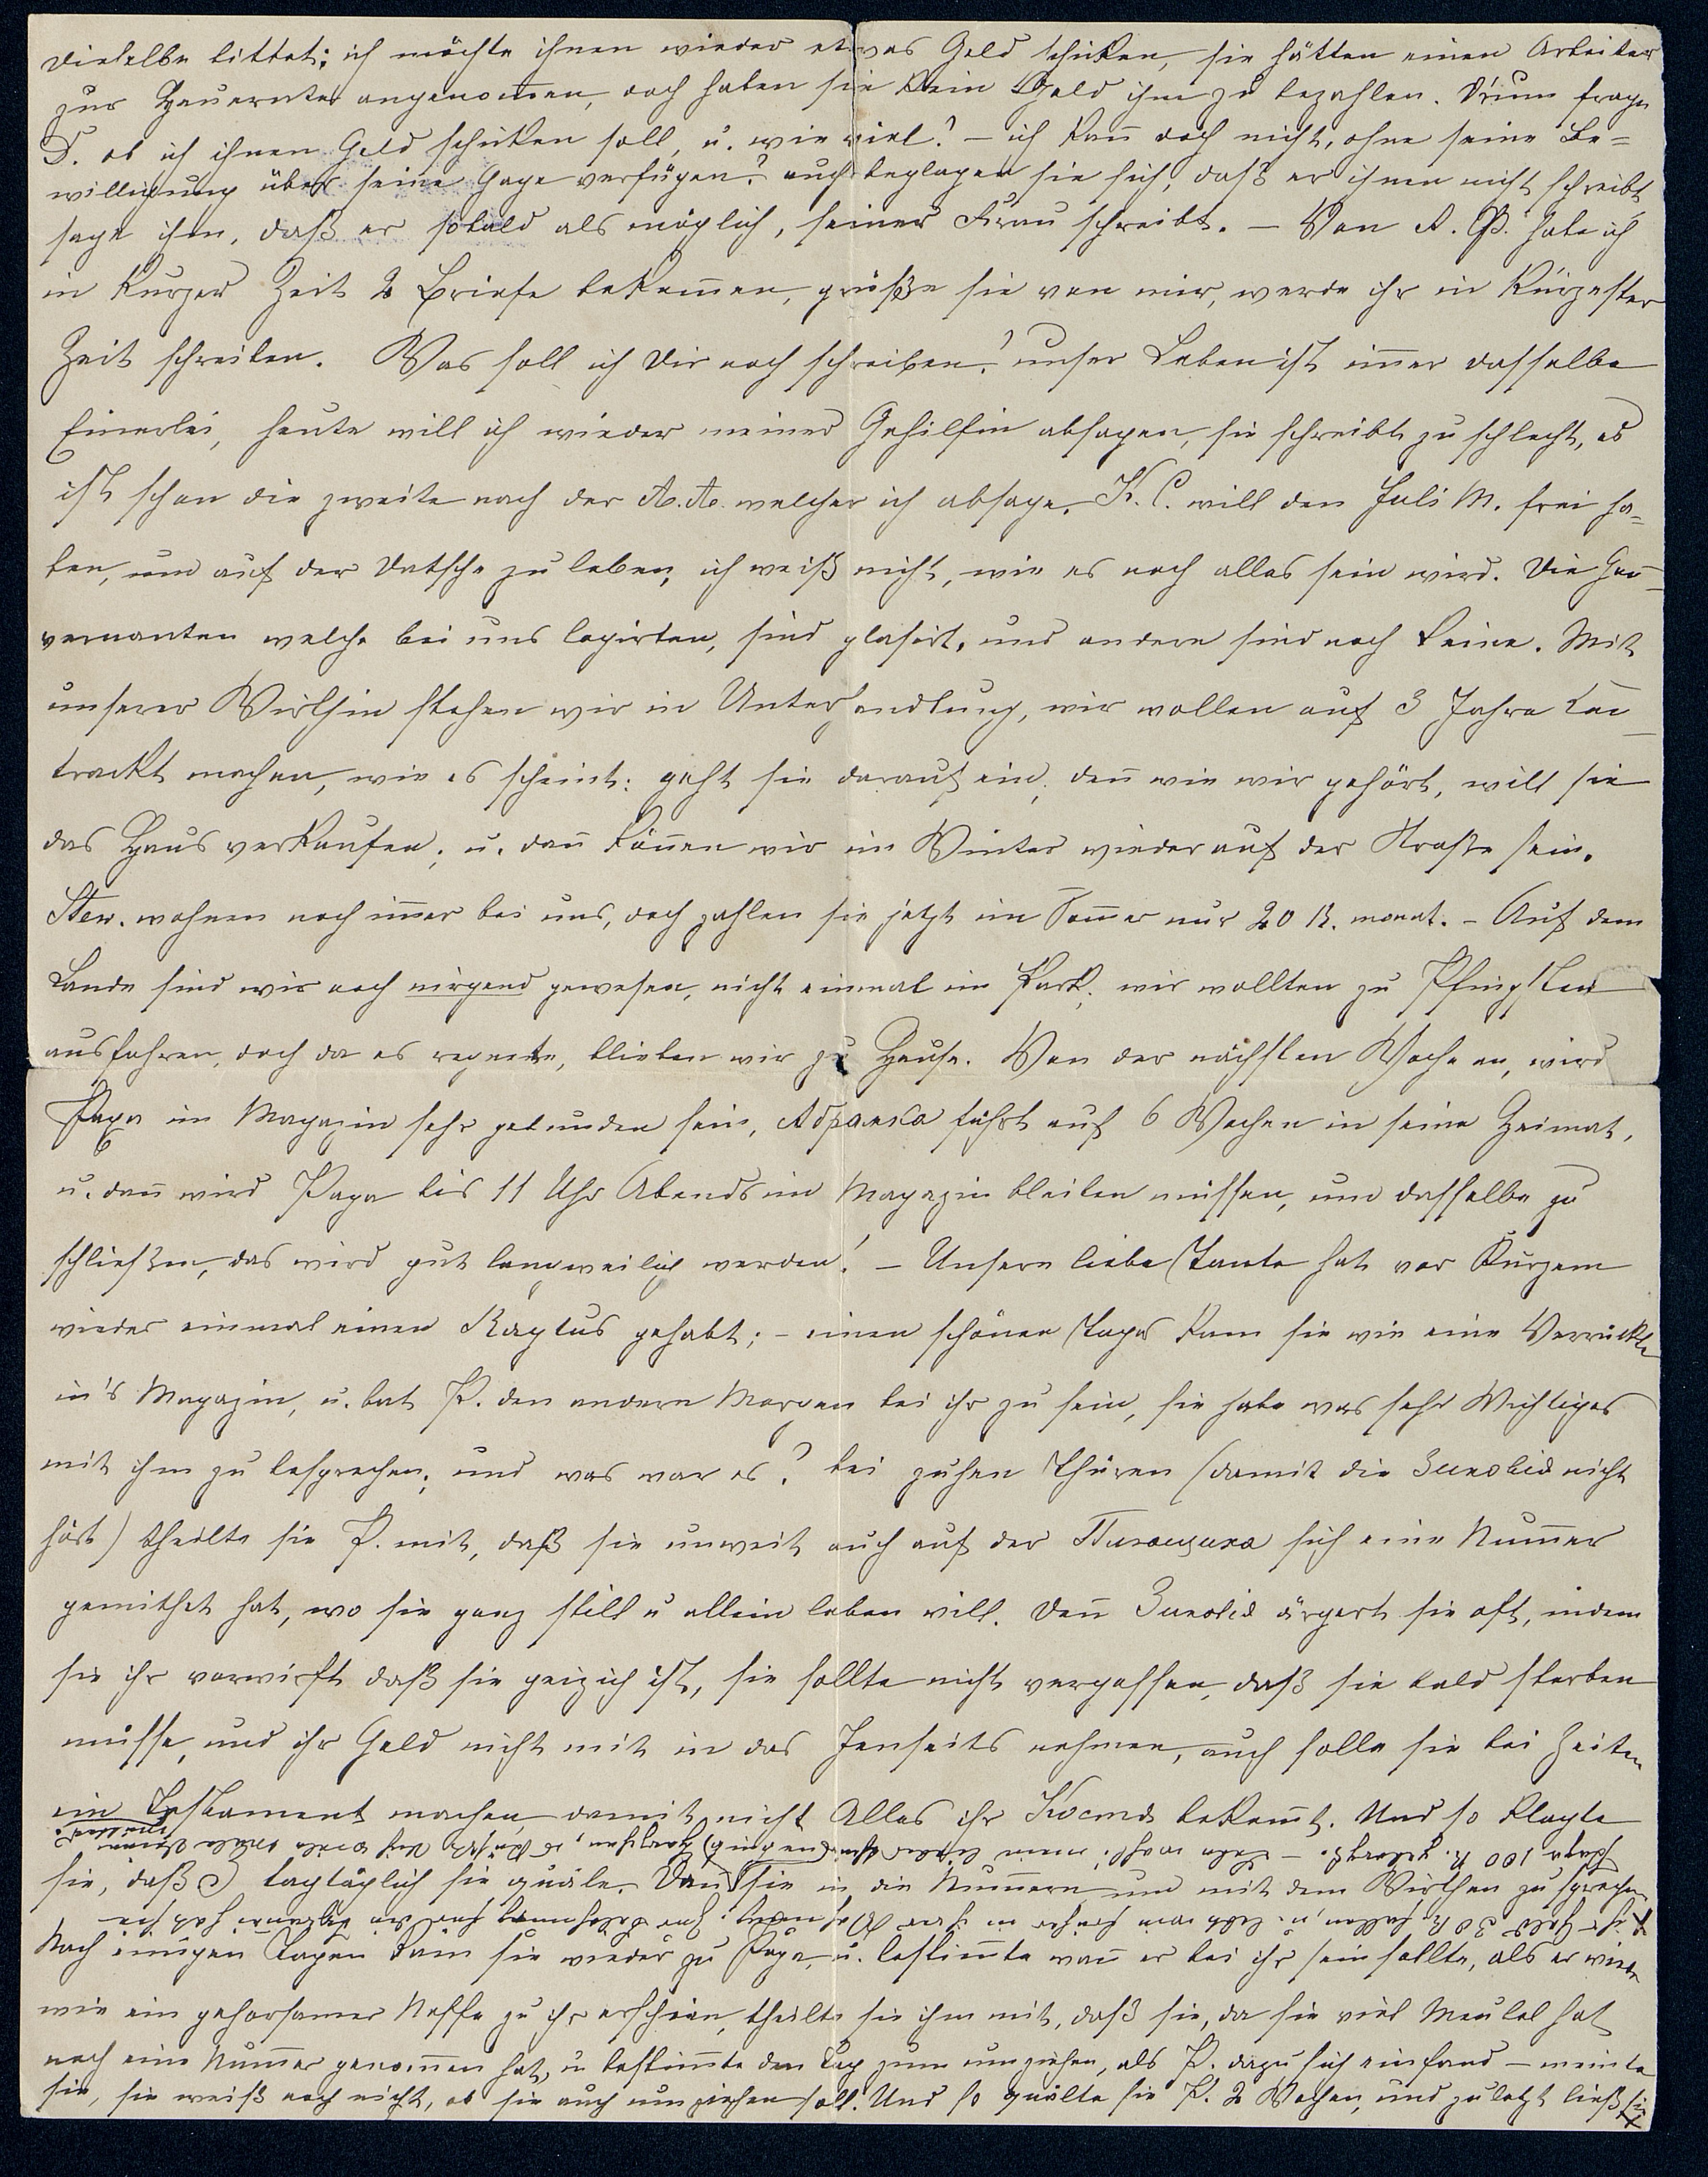 dieselbe bittet: ich möchte ihnen wieder etwas Geld schicken, sie hätten einen Arbeiter
zur Heuernte angenom̄en, doch haben sie kein Geld ihm zu bezahlen. D'rum frage
D. ob ich ihnen Geld schicken soll, u. wie viel? – ich kan̄ doch nicht, ohne seine Be=
willigung über seine Gage verfügen? auch beglagen sie sich, daß er ihnen nicht schreibt,
sage ihm, daß er sobald als möglich, seiner Frau schreibt. – Von A. P. habe ich
in kurzer Zeit 2 Briefe bekom̄en, grüße sie von mir, werde ihr in kürzester
Zeit schreiben. Was soll ich Dir noch schreiben? unser Leben ist im̄er dasselbe
Einerlei, heute will ich wieder meiner Gehilfin absagen, sie schreibt zu schlecht, es
ist schon die zweite nach der A. A. welcher ich absage. K. C. will den Juli M. frei ha=
ben, um auf der Datsche zu leben, ich weiß nicht, wie es noch alles sein wird. Die Gou=
vernanten welche bei uns logirten, sind plasirt, und andere sind noch keine. Mit
unserer Wirthin stehen wir in Unterhandlung, wir wollen auf 3 Jahre Con
trackt machen, wie es scheint: geht sie darauf ein, den̄ wie wir gehört, will sie
das Haus verkaufen, u. dan̄ kön̄en wir im Winter wieder auf der Straße sein.
Stew. wohnen noch im̄er bei uns, doch zahlen sie jetzt im Som̄er nur 20 R. monat. – Auf dem
Lande sind wir noch nirgend gewesen, nicht einmal im Park, wir wollten zu Pfingsten
ausfahren, doch da es regnete, blieben wir zu Hause. Von der nächsten Woche an, wird
Papa im Magazin sehr gebunden sein, Абрамка fährt auf 6 Wochen in seine Heimat,
u. dan̄ wird Papa bis 11 Uhr Abends im Magazin bleiben müssen, um dasselbe zu
schließen, das wird gut langweilig werden! – Unsere liebe Tante hat vor Kurzem
wieder einmal einen Raptus gehabt; – einen schönen Tages kam sie wie eine Verrückte
in's Magazin, u. bat P. den andern Morgen bei ihr zu sein, sie habe was sehr Wichtiges
mit ihm zu besprechen, und was war es? bei zuhen Thüren (damit die Зиновiя nicht
hört) theilte sie P. mit, daß sie unweit auch auf der Плющиха sich eine Num̄er
gemithet hat, wo sie ganz still u allein leben will. Den̄ Зиновiя ärgert sie oft, indem
sie ihr vorwirft daß sie geizich ist, sie sollte nicht vergessen, daß sie bald sterben
müsse, und ihr Geld nicht mit in das Jenseits nehmen, auch solle sie bei Zeiten
ein Testament machen, damit nicht Alles ihr Костя bekom̄t. Und so klagte
sie, daß З tagtäglich sie quäle. Dan̄ sie in die Num̄ern um mit dem Wirthen zu sprechen
Nach einigen Tagen kam sie wieder zu Papa, u. bestim̄te wan̄ er bei ihr sein sollte, als er wieder
wie ein gehorsamer Neffe zu ihr erschien, theilte sie ihm mit, daß sie, da sie viel Meubel hat
noch eine Num̄er genom̄en hat, u bestim̄te den Tag zum umziehen, als P. dazu sich einfand – meinte
sie, sie weiß noch nicht, ob sie auch umziehen soll. Und so quälte sie P. 2 Wochen, und zuletzt ließ sie
ihr Geld 30 R. fallen, u. lebt wie früher in ihrer Wohnung.
Papa 100 R. – Lebe wohl! mein lieber